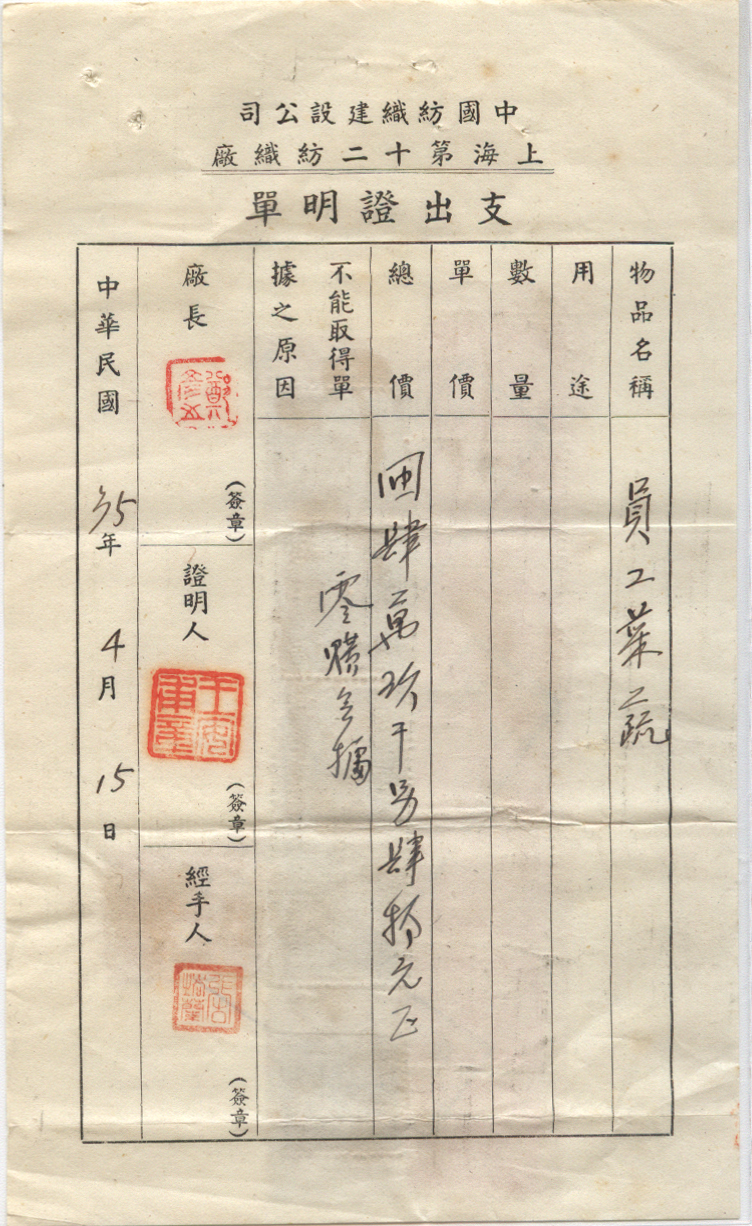 中國紡織建設公司
上海第十二紡織廠
支出證明單
物品名稱 員工菜蔬
用途
數量
單價
總價 肆萬玖千另肆拾元正
不能取得單
據之原因
零購無據
廠長
(簽章)
證明人
(簽章)
經手人
(簽章)
中華民國 35年 4月 15日